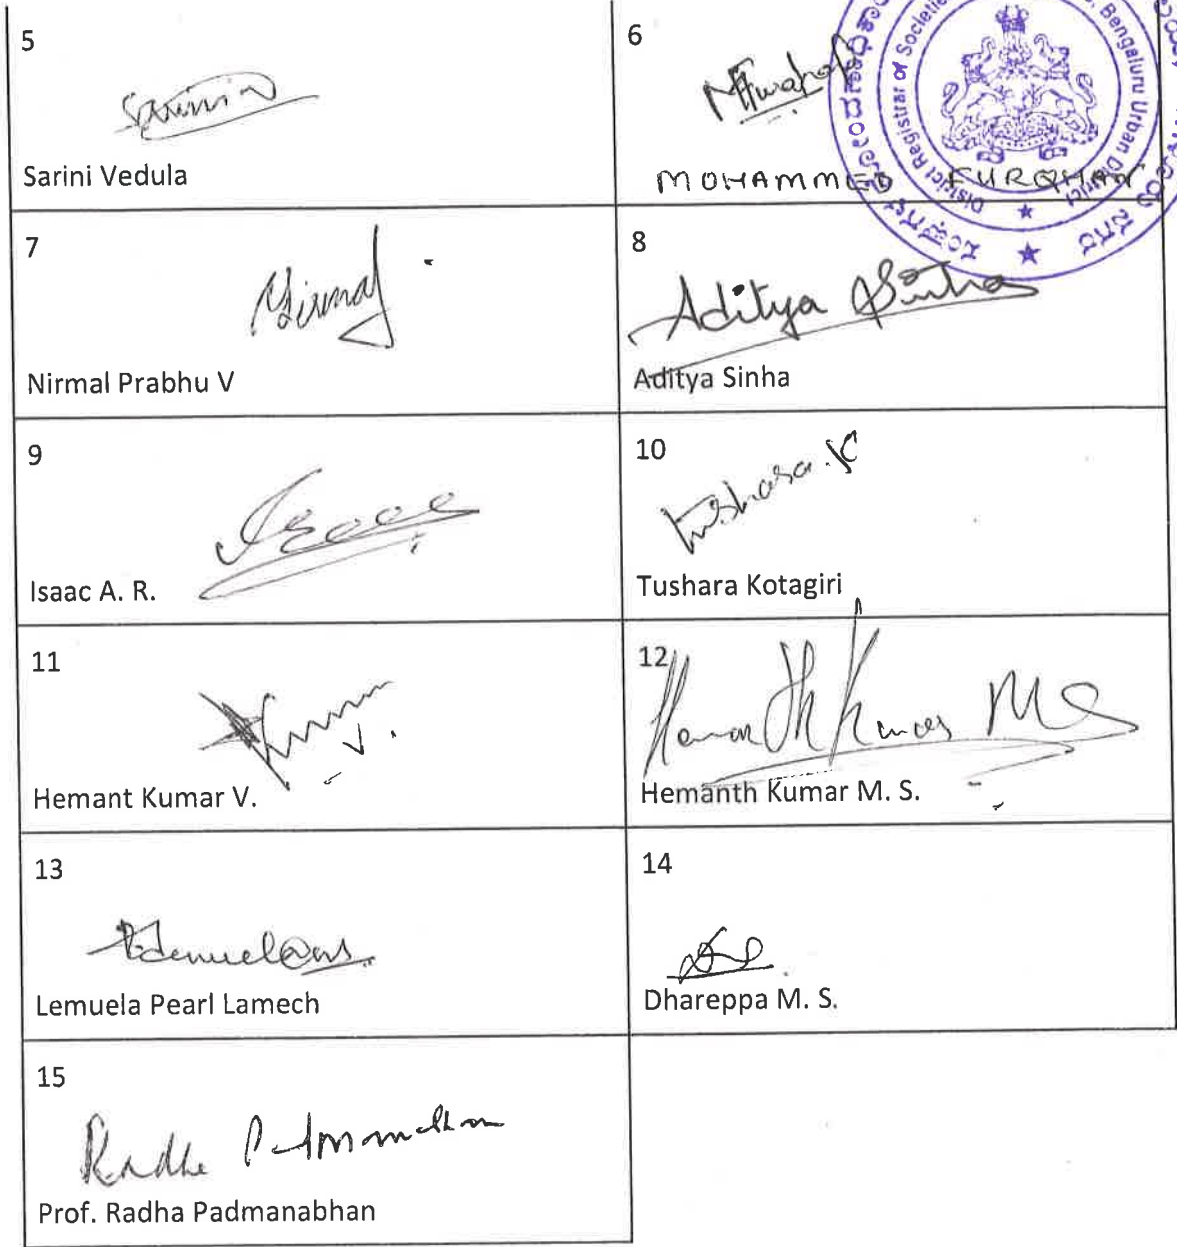 5
Sarini Vedula
6
MOHAMMED FURQHAN
District Registrar of Societies
Bengaluru Urban District
7
Nirmal
Nirmal Prabhu V
8
Aditya Sinha
Aditya Sinha
9
Isaac
Isaac A. R.
10
Tushara.K
Tushara Kotagiri
11
Hemant Kumar V.
12
Hemanth Kumar M S
Hemanth Kumar M. S.
13
Lemuela Pearl Lamech
14
Dhareppa M. S.
15
Radha Padmanabhan
Prof. Radha Padmanabhan